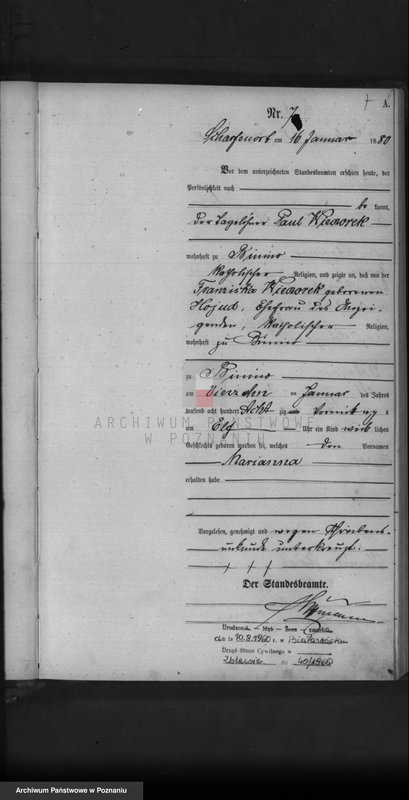 7 A.
Nr. 7
Scharfenort am 16 Januar 1880
Vor dem unterzeichneten Standesbeamten erschien heute, der
Persönlichkeit nach
be kannt,
der Tagelöhner Paul Wieczorek
wohnhaft zu Binino
katholischer Religion, und zeigte an, daß von der
Franziska Wieczorek geborenen
Hojud, Ehefrau des Anzei-
genden, katholischer Religion,
wohnhaft zu Binino
zu Binino
am Vierzehn ten Januar des Jahres
tausend acht hundert Acht zig Vormittags
um Elf Uhr ein Kind weib lichen
Geschlechts geboren worden sei, welches den Vornamen
Marianna
erhalten habe.
Vorgelesen, genehmigt und wegen Schreibens-
unkunde unterkreuzt.
+ + +
Der Standesbeamte.
Urodzona
dnia 10.8.1960 r. w
Urząd Stanu Cywilnego w
Zblewie Nr 40/1960
ARCHIWUM PAŃSTWOWE
W POZNANIU
Archiwum Państwowe w Poznaniu